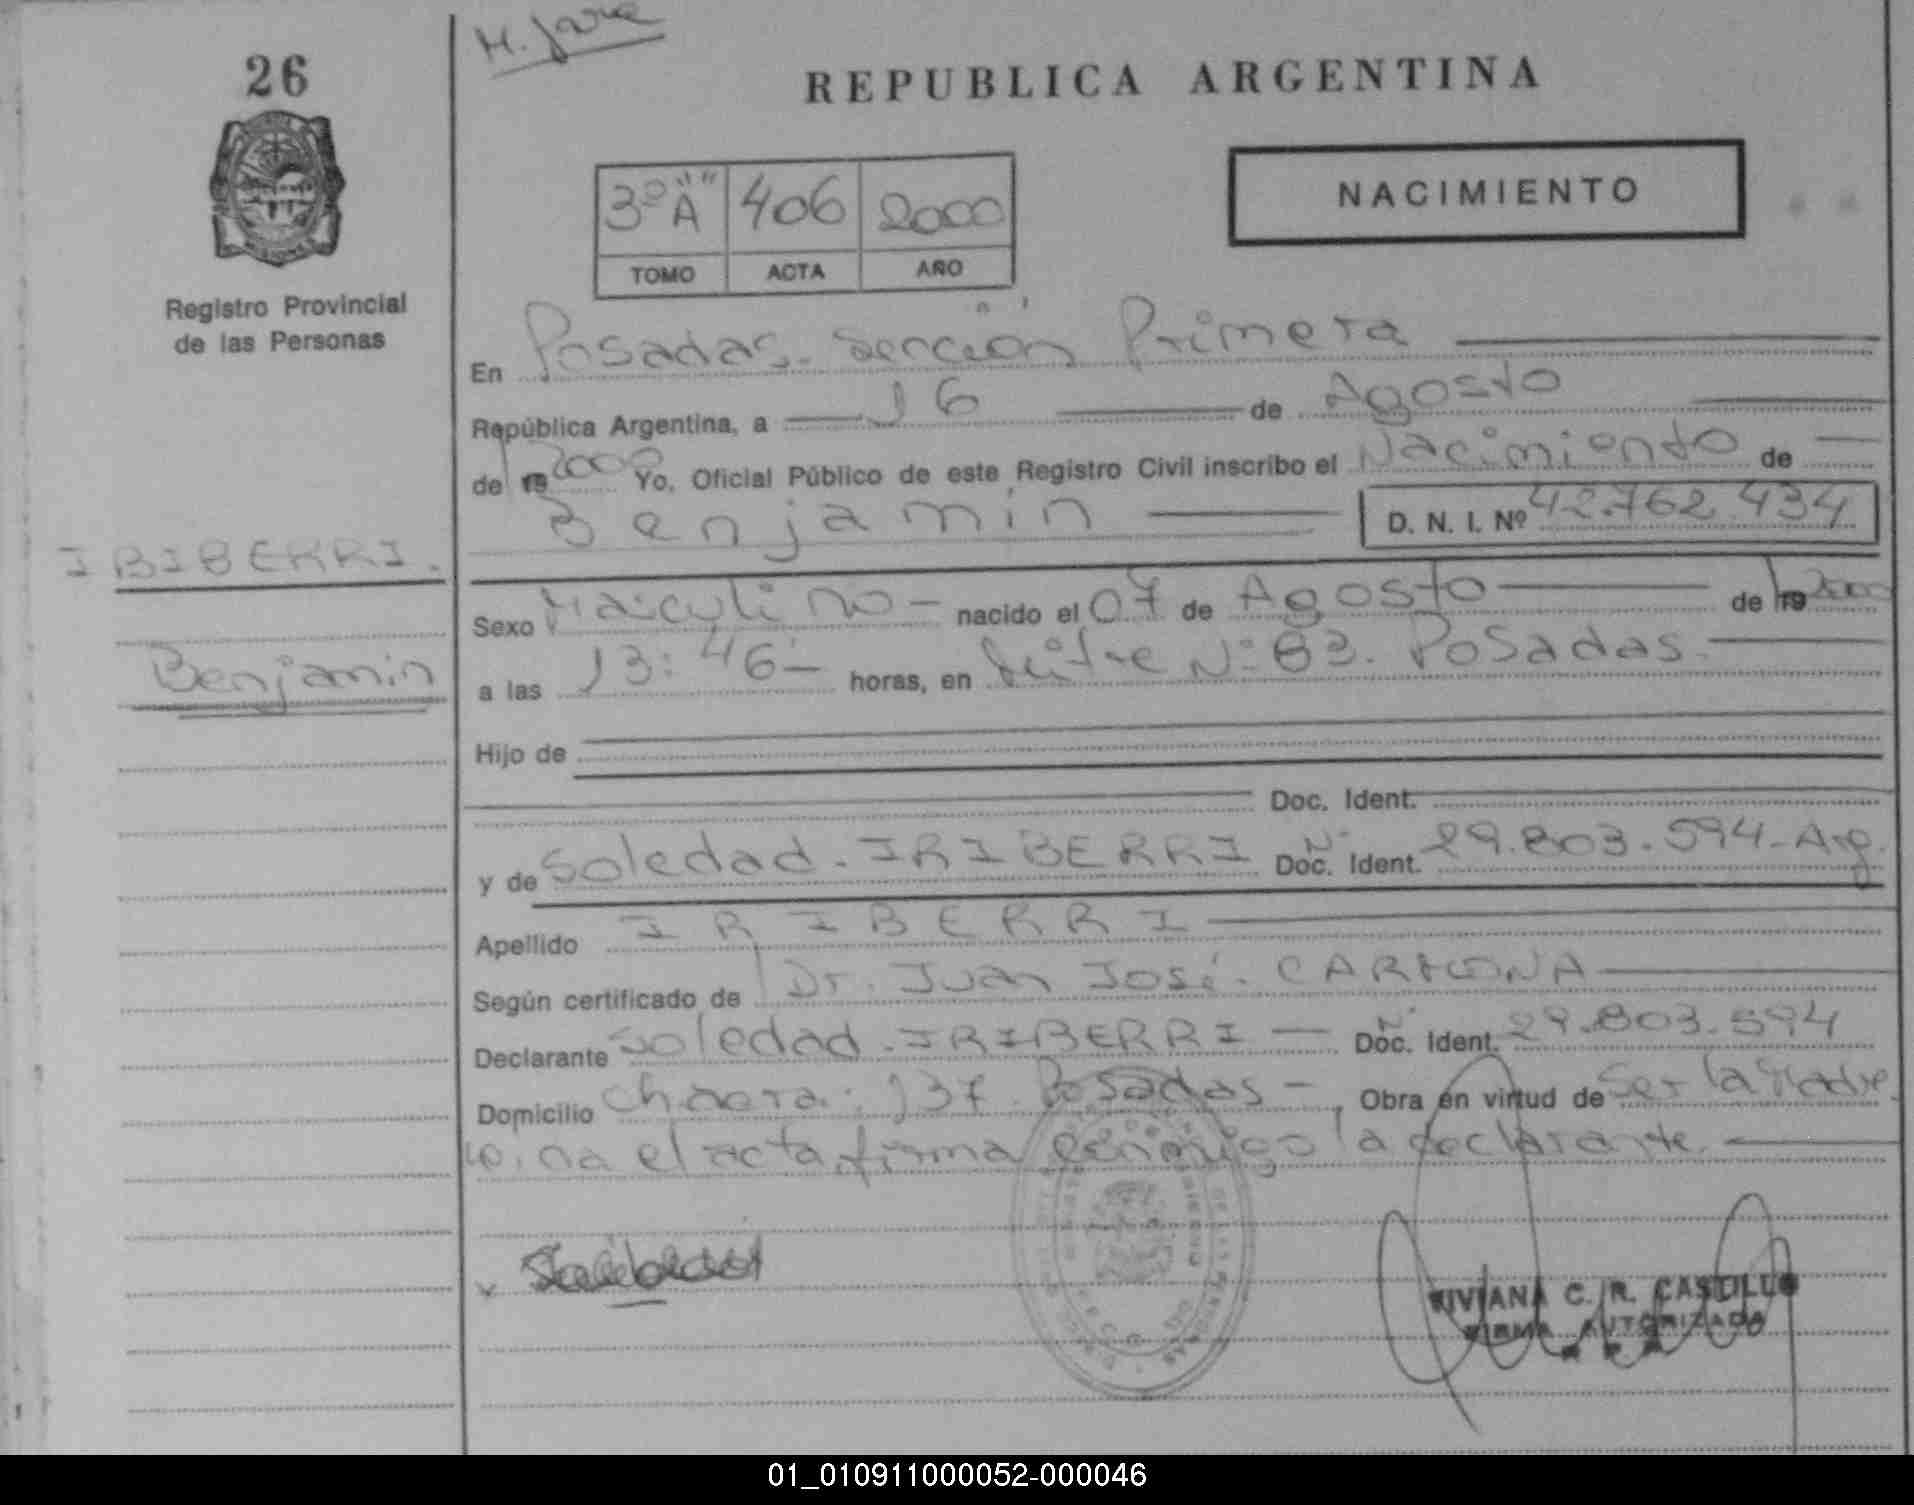 26
Registro Provincial
de las Personas
REPUBLICA ARGENTINA
NACIMIENTO
3º "A" 406 2000
TOMO ACTA AÑO
En Posadas. Sección Primera
República Argentina, a 16 de Agosto
de 19 2000 Yo, Oficial Público de este Registro Civil inscribo el Nacimiento de
Benjamín D. N. I. Nº 42.762.434
IBIBERRI.
Benjamín
Sexo Masculino - nacido el 07 de Agosto de 19 2000
a las 13:46 - horas, en Nº 83. Posadas.
Hijo de
Doc. Ident.
y de Soledad. IRIBERRI Doc. Ident. Nº 29.803.594 - Arg.
Apellido IRIBERRI
Según certificado de Dr. Juan José. CARMONA
Declarante Soledad. IRIBERRI - Doc. Ident. Nº 29.803.594
Domicilio Chacra. 137. Posadas - , Obra en virtud de Ser la Madre
el acta firma conmigo la declarante.
Soledad
VIVIANA C. R. CASTILLO
FIRMA AUTORIZADA
01_010911000052-000046